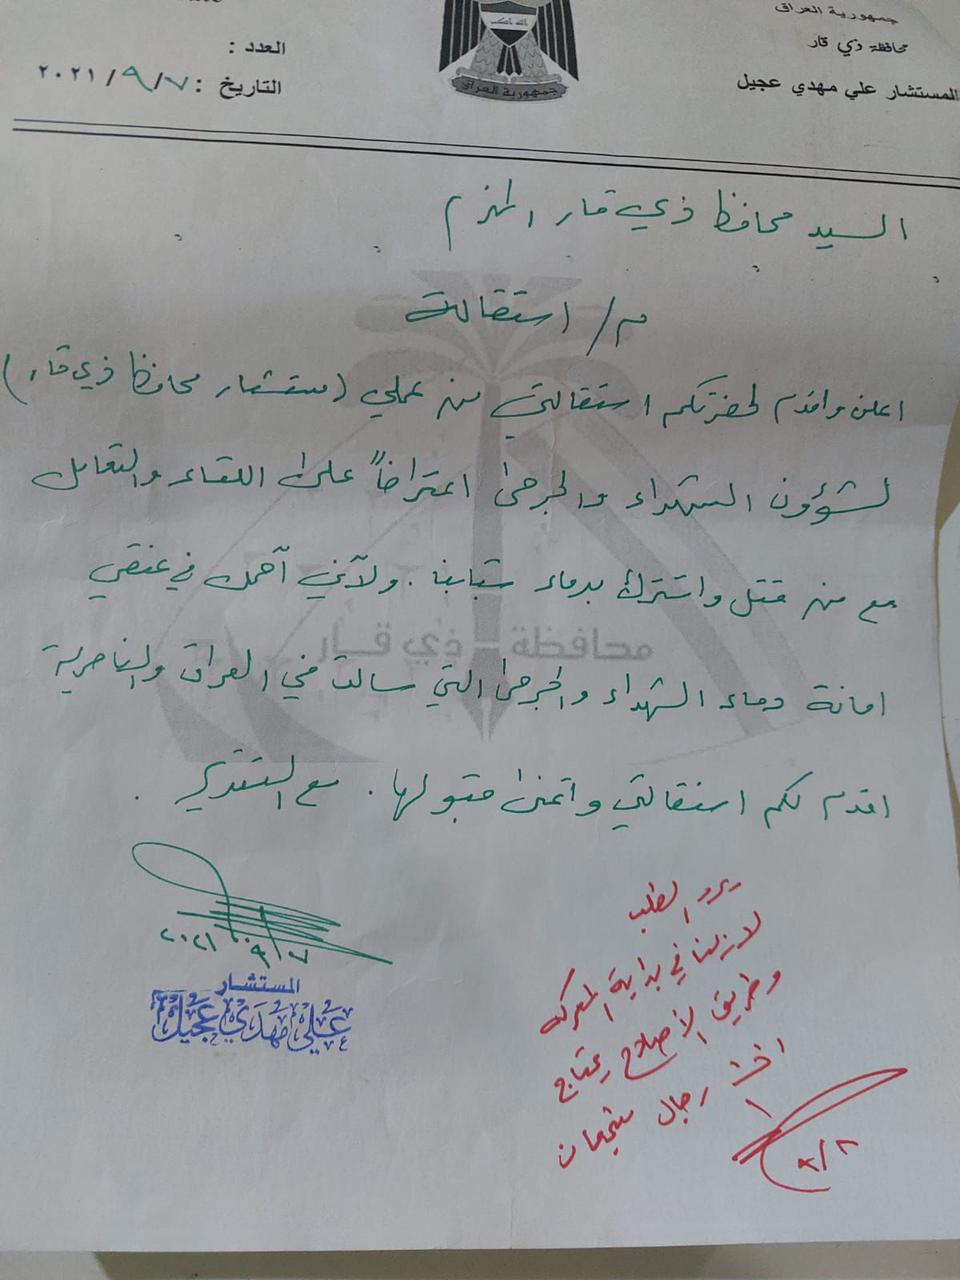 جمهورية العراق
محافظة ذي قار
المستشار علي مهدي عجيل
الله اكبر
جمهورية العراق
العدد :
التاريخ : ٧/ ٩/ ٢٠٢١
السيد محافظ ذي قار المحترم
م/ استقالة
اعلن واقدم لحضرتكم استقالتي من عملي (مستشار محافظ ذي قار)
لشؤون الشهداء والجرحى اعتراضاً على اللقاء والتعامل
مع من قتل واشترك بدماء شبابنا . ولأنني أحمل في عنقي
محافظة ذي قار
امانة دماء الشهداء والجرحى التي سالت في العراق والناصرية
اقدم لكم استقالتي واتمنى قبولها . مع التقدير .
٧/ ٩/ ٢٠٢١
المستشار
علي مهدي عجيل
يرد الطلب
لازلنا في بداية المعركة
وطريق الأصلاح يحتاج
رجال شجعان